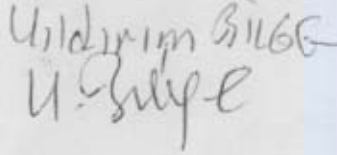 Yıldırım BİLGE
Y. Bilge